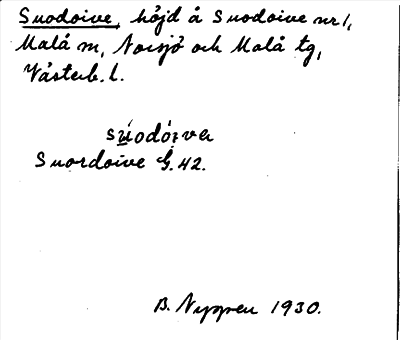 Suodoive, höjd å Suodoive nr 1,
Malå m, Norsjö och Malå tg,
Västerb. l.
súodói̯vɐ
Suordoive G. 42.
B. Nyppen 1930.